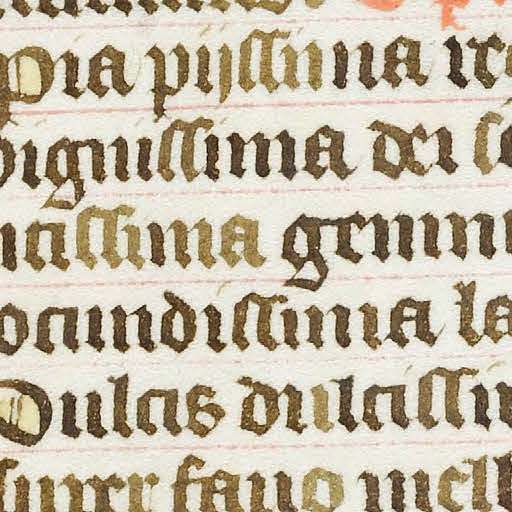 Pia pijssima
dignissima dei
issima gemm
ocundissima la
Dulcis dulcissi
super fauo mell